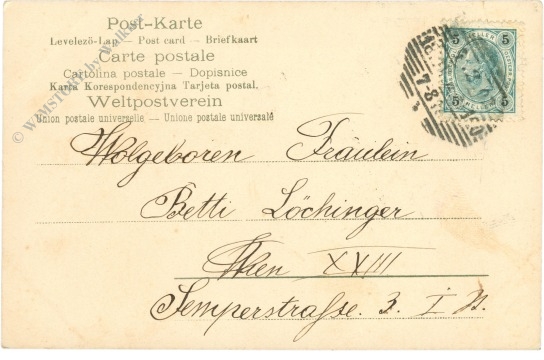 Post-Karte
Levelezö-Lap — Post card — Briefkaart
Carte postale
Cartolina postale — Dopisnice
Karta Korespondencyjna Tarjeta postal.
Weltpostverein
Union postale universelle — Unione postale universale
Wolgeboren Fräulein
Betti Löchinger
Wien XVIII
Semperstraße. 3. I
5 HELLER 5
5 5
© WWMSTORY by Walker